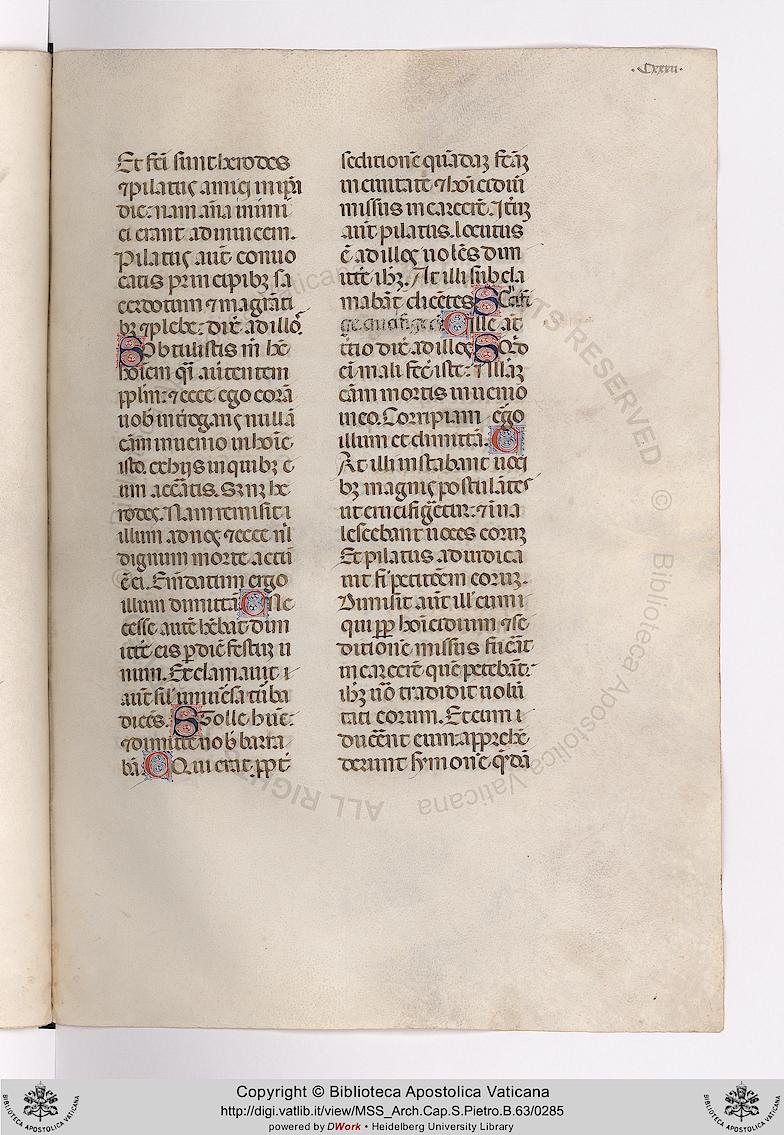 ·Cxxxii·
Et fc̄i sunt herodes
⁊ pilatus amici in ip̄a
die: nam an̄a inimi
ci erant ad inuicem.
Pilatus aut̄ conuo
catis principibꝫ sa
cerdotum ⁊ magr̄ati
bꝫ ⁊ plebe: dix̄ ad illo
S Obtulistis m̄ hc̄
hoīem q̄i auertentem
pplm̄: ⁊ ecce ego corā
uob̄ int̄rogans nullā
cām inuenio in hoīe
isto. ex hijs in quibꝫ e
um accatis. Sꝫ nꝫ he
rodes. Nam remisit i
illum ad uos ⁊ ecce nl̄
dignum morte actū
ē ei. Emēdatum ergo
illum dimittā. C Ne
cesse aut̄ hēbat dim
itte eis p diē festū u
num. Exclamauit i
aut̄ sil' uniuesa tuba
dicēs. S Tolle hūc:
⁊ dimitte nob̄ barra
bā. C Qui erat ꝓpt̄
seditionē quādaꝫ fc̄aꝫ
in ciuitate ⁊ homicidiū
missus in carcerē. Itꝫ
aut̄ pilatus locutus
ē ad illos uolēs dim
itte ihꝫ. At illi subcla
mabāt dicētes S Crucifi
ge crucifige eū C Ille aū
tertio dix̄ ad illos S Quid
eī mali fec̄ iste: ⁊ nllāꝫ
cām mortis inuenio
in eo. Corripiam ego
illum et dimittā. C
At illi instabant uoci
bꝫ magnis postulātes
ut crucifigeet̄: ⁊ inua
lescebant uoces eorū
Et pilatus adiudica
uit fi petitōem eorum.
Dimisit aut̄ ill' eum i
qui ꝓp homicidium ⁊ se
ditionē missus fuerāt
in carcerē quē petebāt:
ihꝫ uo tradidit uolū
tati eorum. Et cum i
ducerēt eum. apprehē
derunt symonē quendā
ALL RIGHTS RESERVED © Biblioteca Apostolica Vaticana
Copyright © Biblioteca Apostolica Vaticana
http://digi.vatlib.it/view/MSS_Arch.Cap.S.Pietro.B.63/0285
powered by DWork • Heidelberg University Library
BIBLIOTECA APOSTOLICA VATICANA
BIBLIOTECA APOSTOLICA VATICANA